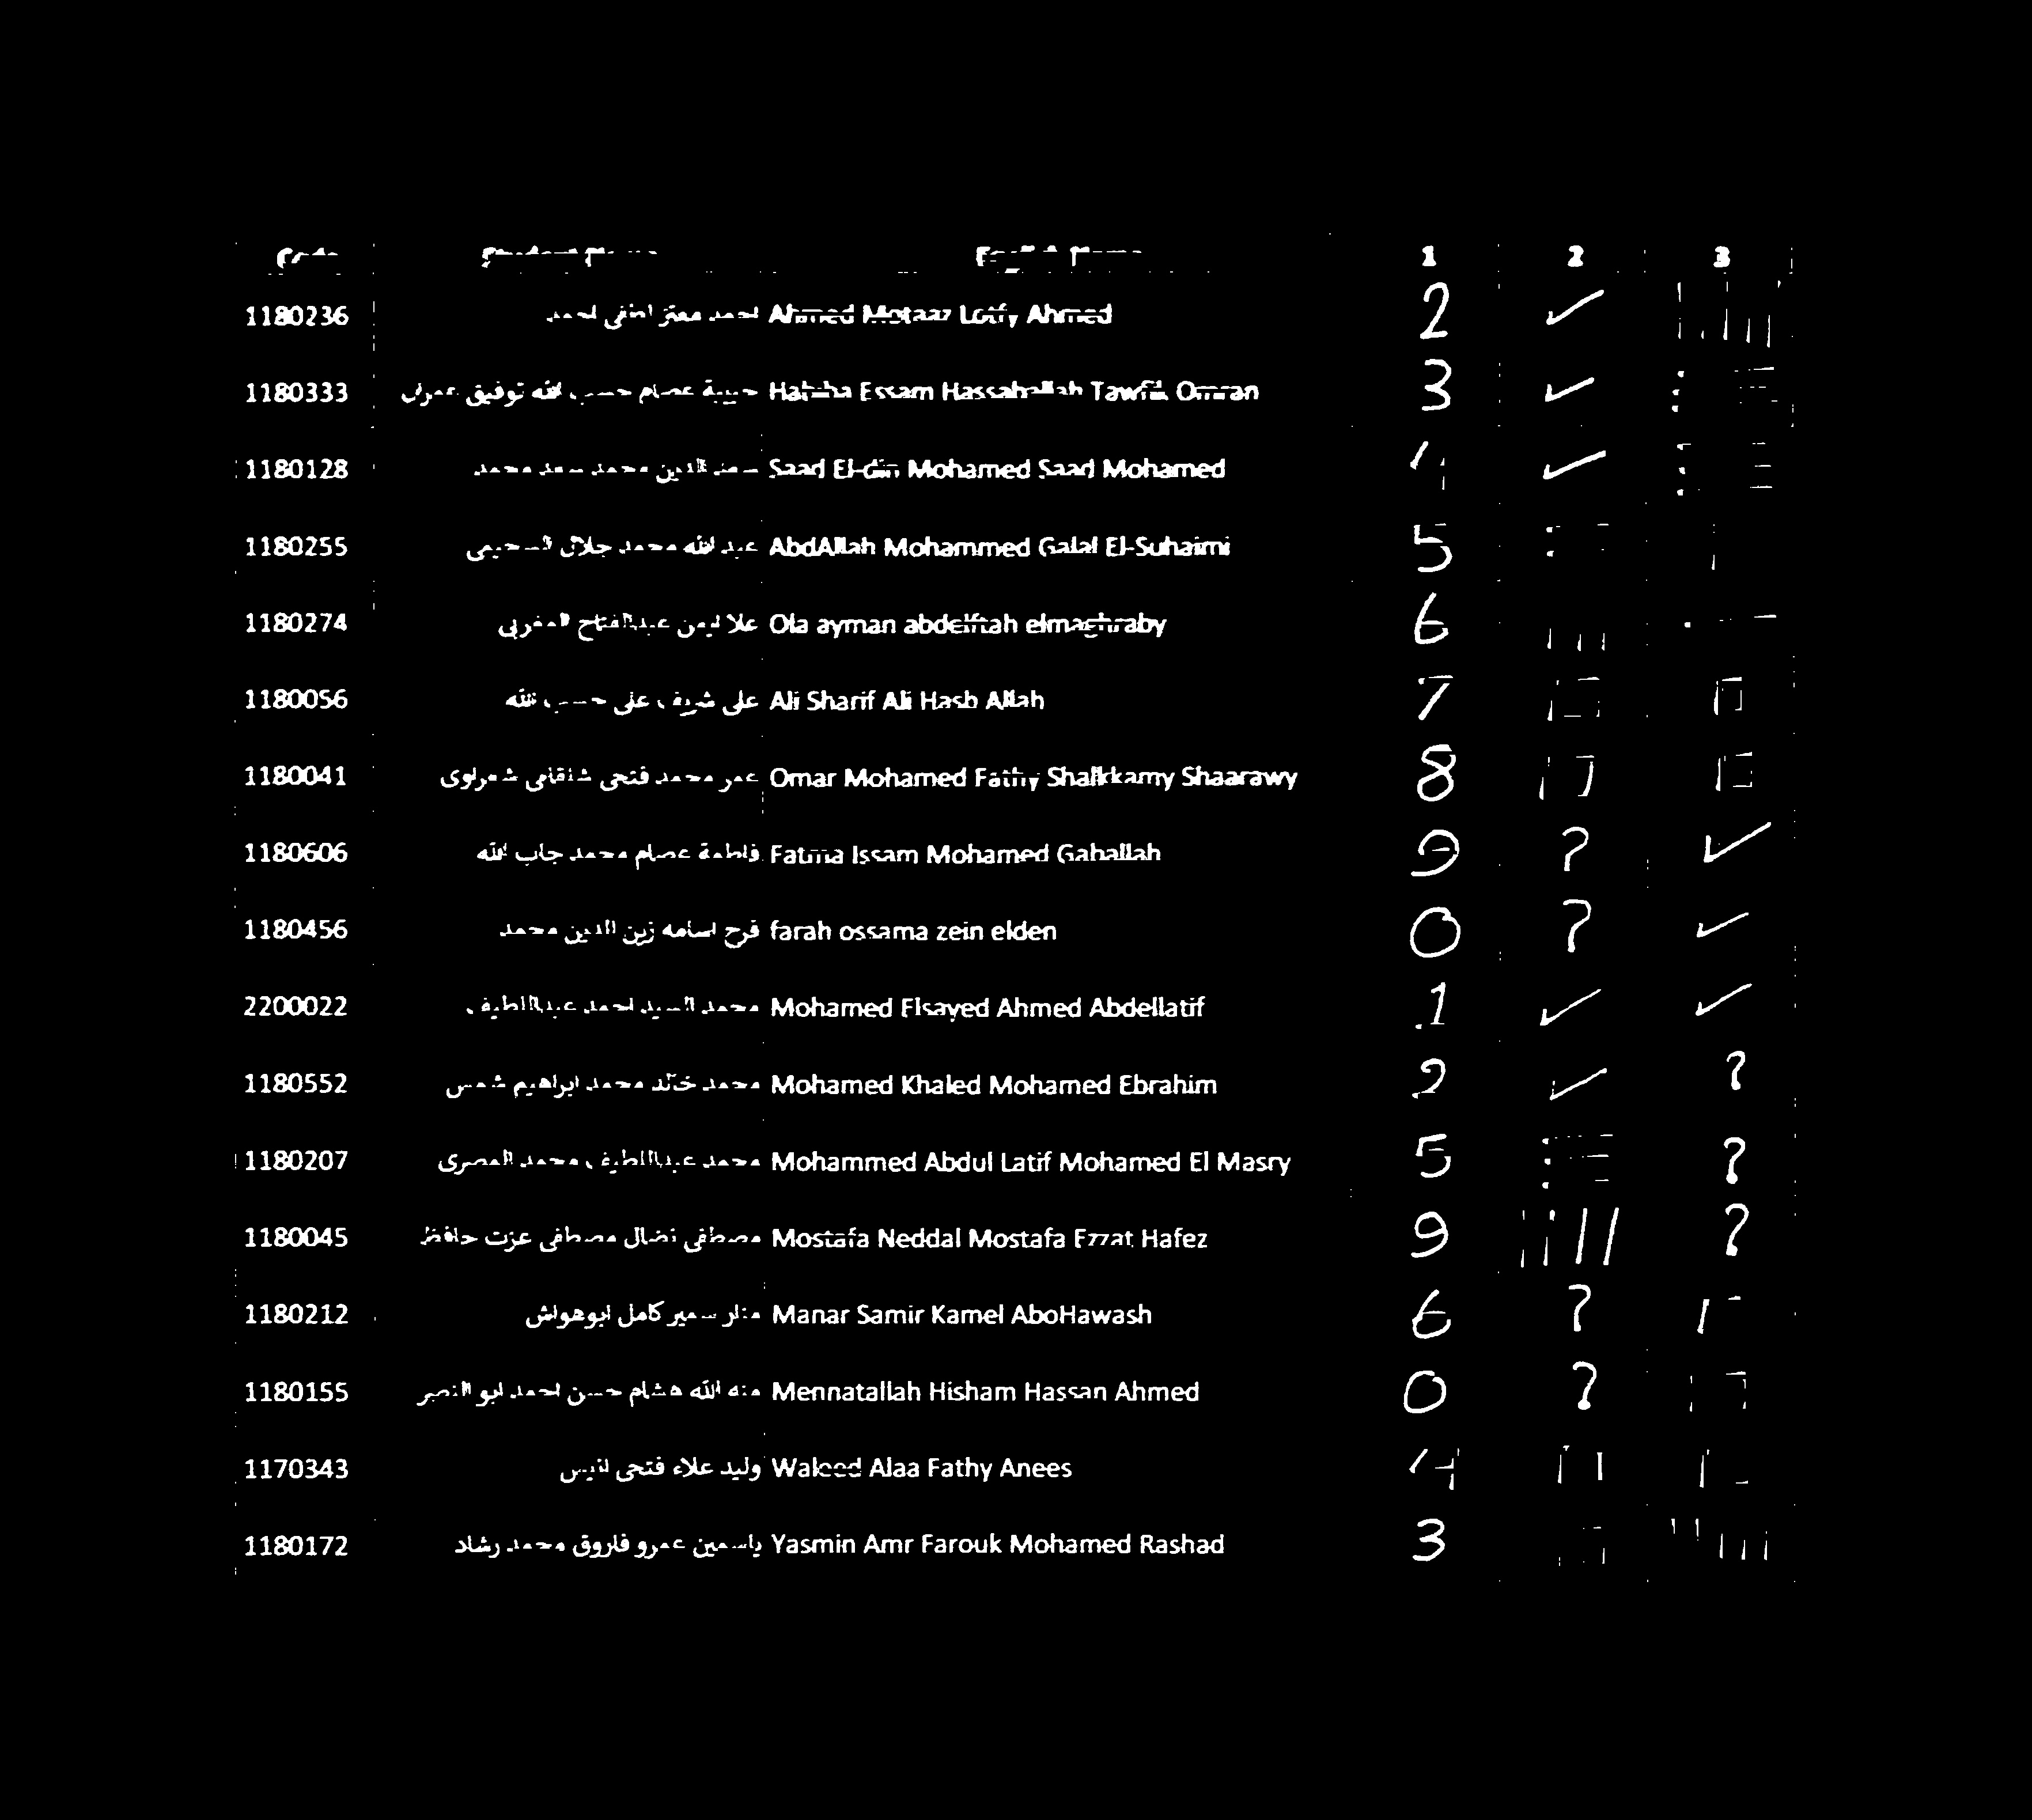 1 2 3
1180236 احمد معتز لطفى احمد Ahmed Motaaz Lotfy Ahmed 2 ✓
1180333 حبيبة عصام حسب الله توفيق عمران Habiba Essam Hassaballah Tawfik Omran 3 ✓
1180128 سعد الدين محمد سعد محمد Saad El-din Mohamed Saad Mohamed 4 ✓
1180255 عبد الله محمد جلال السحيمى AbdAllah Mohammed Galal El-Suhaimi 5
1180274 علا ايمن عبدالفتاح المغربى Ola ayman abdelftah elmaghraby 6
1180056 على شريف على حسب الله Ali Sharif Ali Hasb Allah 7
1180041 عمر محمد فتحى شلقامى شعراوى Omar Mohamed Fathy Shalkkamy Shaarawy 8
1180606 فاطمة عصام محمد جاب الله Fatma Issam Mohamed Gaballah 9 ? ✓
1180456 فرح اسامه زين الدين محمد farah ossama zein elden 0 ? ✓
2200022 محمد السيد احمد عبداللطيف Mohamed Elsayed Ahmed Abdellatif 1 ✓ ✓
1180552 محمد خالد محمد ابراهيم شمس Mohamed Khaled Mohamed Ebrahim 2 ✓ ?
1180207 محمد عبداللطيف محمد المصرى Mohammed Abdul Latif Mohamed El Masry 5 ?
1180045 مصطفى نضال مصطفى عزت حافظ Mostafa Neddal Mostafa Ezzat Hafez 9 //// ?
1180212 منار سمير كامل ابوهواش Manar Samir Kamel AboHawash 6 ?
1180155 منه الله هشام حسن احمد ابو النصر Mennatallah Hisham Hassan Ahmed 0 ?
1170343 وليد علاء فتحى انيس Waleed Alaa Fathy Anees 4
1180172 ياسمين عمرو فاروق محمد رشاد Yasmin Amr Farouk Mohamed Rashad 3